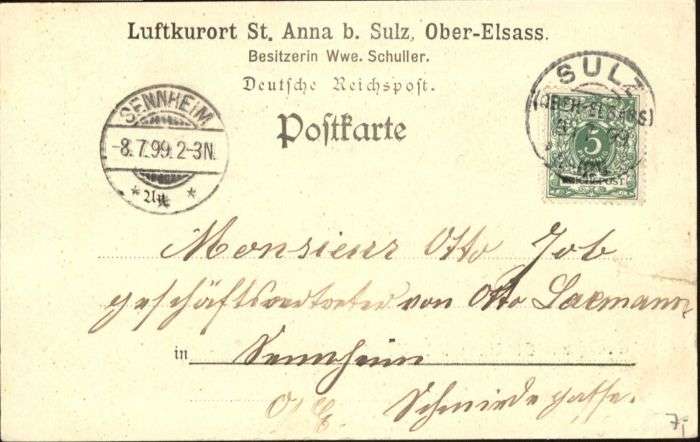 Luftkurort St. Anna b. Sulz, Ober-Elsass.
Besitzerin Wwe. Schuller.
Deutsche Reichspost.
Postkarte
SENNHEIM
-8.7.99.2-3N.
SULZ
(OBER-ELSASS)
99
5
REICHSPOST
Monsieur Otto Job
geschäftsvertreter von Otto Laemann
in Sennheim
O/E. Schmiedegasse.
7,-